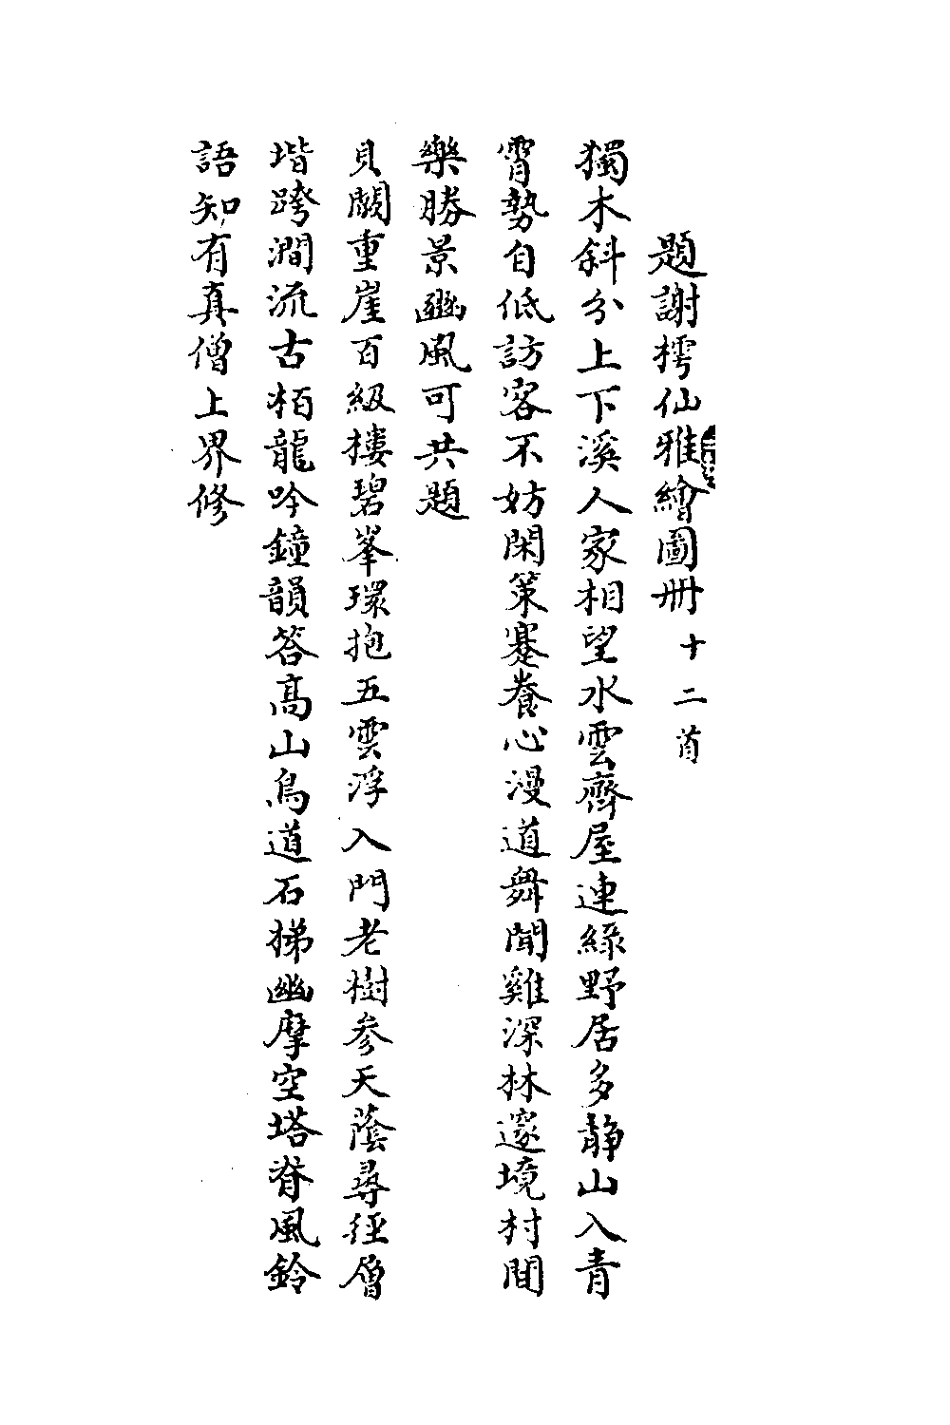 題謝樗仙雅繪圖冊十二首
獨木斜分上下溪人家相望水雲齊屋連綠野居多靜山入青
霄勢自低訪客不妨閑策蹇養心漫道舞聞雞深林邃境村間
樂勝景豳風可共題
貝闕重崖百級樓碧峯環抱五雲浮入門老樹參天蔭尋徑層
堦跨澗流古栢龍吟鐘韻答高山鳥道石梯幽摩空塔脊風鈴
語知有真僧上界修